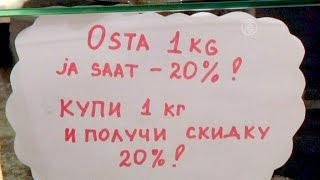 OSTA 1 KG
JA SAAT – 20% !
КУПИ 1 КГ
И ПОЛУЧИ СКИДКУ
20% !